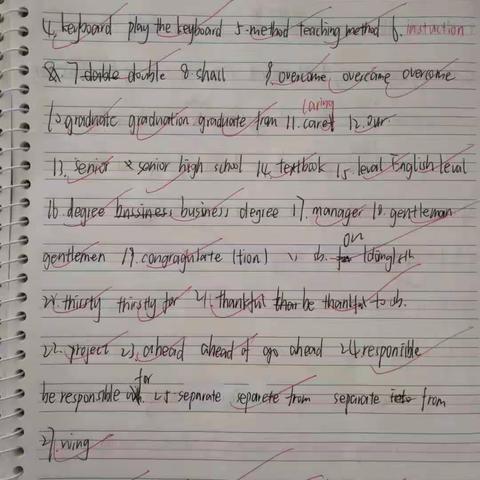 4. keyboard play the keyboard 5. method teaching method 6. instuction
7 double double 8. shall 9. overcome overcame overcome
caring
10. graduate graduation graduate from 11. care 12. our
13. senior senior high school 14. textbook 15. level English level
16. degree bussiness business degree 17. manager 18. gentleman
on
gentlemen 19. congragulate (tion) sb. for (doing) sth
20. thirsty thirsty for 21. thankful be thankful to sb.
22. project 23. ahead ahead of go ahead 24 responsible
for
be responsible 25 separate separete from separate into from
27. wing